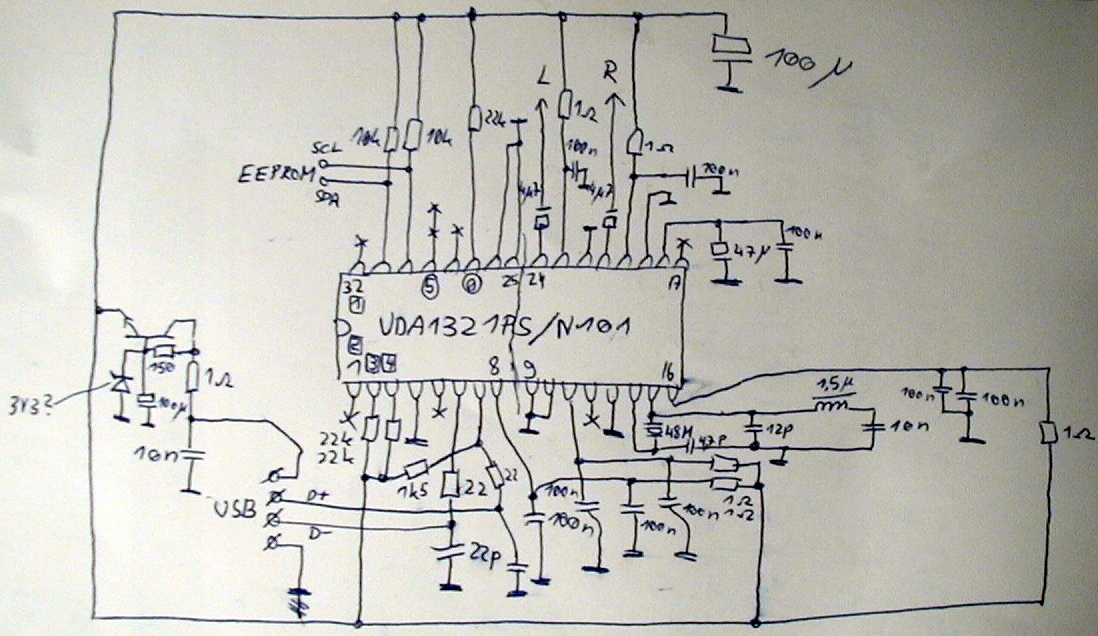 100 µ
L
R
22k
1Ω
100n
1Ω
100n
10k
10k
SCL
EEPROM
SDA
4µ7
4µ7
47µ
100n
32
5
0
25
24
17
1
UDA1321PS/N101
2
1
3
4
8
9
16
150
1Ω
3V3?
100µ
10n
22k
22k
1k5
22
22
USB
D+
D-
22p
48M
47p
12p
1,5µ
10n
100n
100n
1Ω
100n
100n
100n
100n
1Ω
1Ω